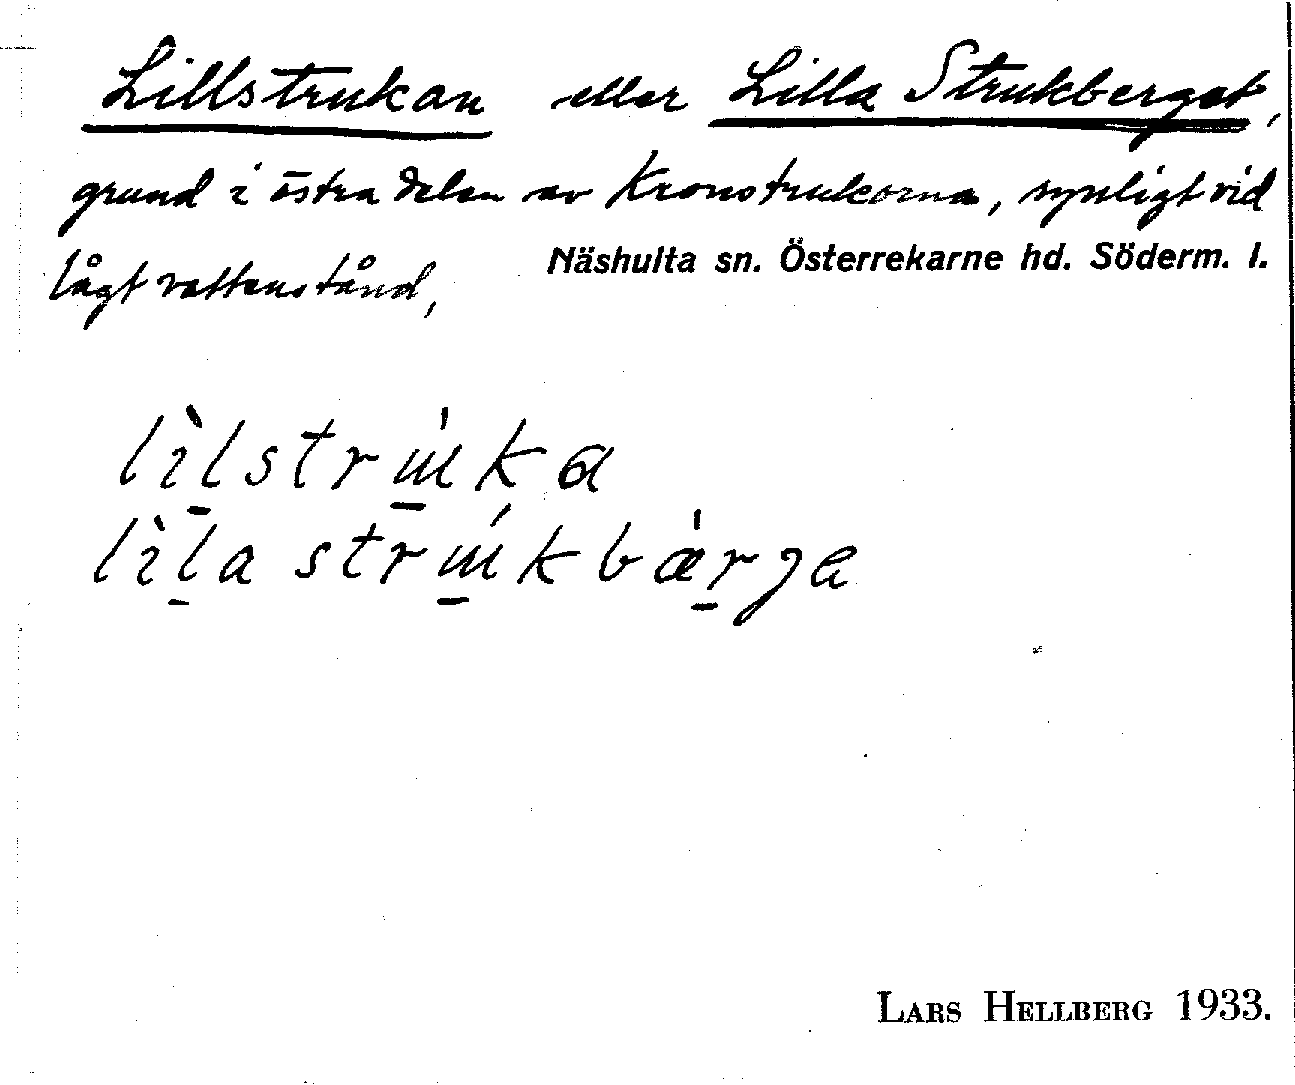 Lillstrukan eller Lilla Strukberget,
grund i östra delen av Kronstrukorna, synligt vid
lågt vattenstånd,
Näshulta sn. Österrekarne hd. Söderm. l.
lìl̠strɯ̠̀ka
lìl̠a strɯ̠́kbæ̀r̠ga
LARS HELLBERG 1933.